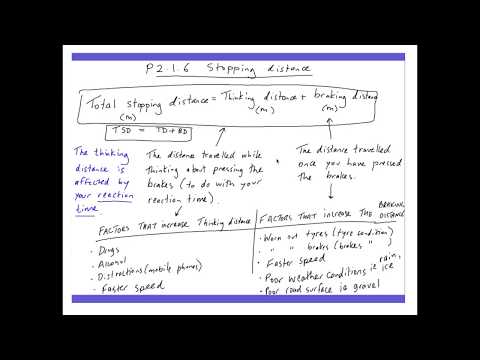 P2.1.6 Stopping distance
Total stopping distance = Thinking distance + braking distance
(m) (m) (m)
TSD = TD + BD
The thinking
distance is
affected by
your reaction
time.
The distance travelled while
thinking about pressing the
brakes (to do with your
reaction time).
The distance travelled
once you have pressed
the brakes.
FACTORS THAT increase Thinking distance
• Drugs
• Alcohol
• Distractions (mobile phones)
• Faster speed
FACTORS THAT increase THE BRAKING
DISTANCE
• Worn out tyres (tyre condition)
• " " brakes (brakes ")
• Faster speed
• Poor weather conditions ie rain,
ice
• Poor road surface ie gravel